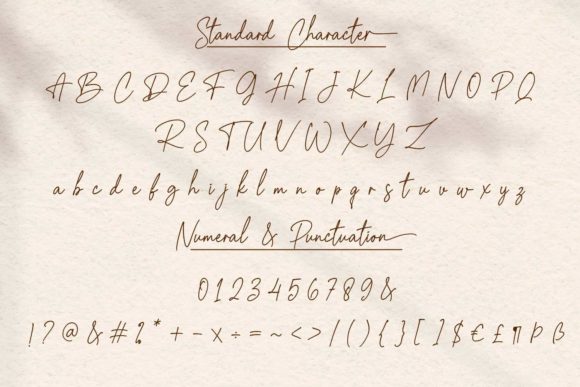 Standard Character
A B C D E F G H I J K L M N O P Q
R S T U V W X Y Z
a b c d e f g h i j k l m n o p q r s t u v w x y z
Numeral & Punctuation
0 1 2 3 4 5 6 7 8 9 &
! ? @ & # % * + - × ÷ = ~ < > / ( ) { } [ ] $ € £ ¶ Þ ß